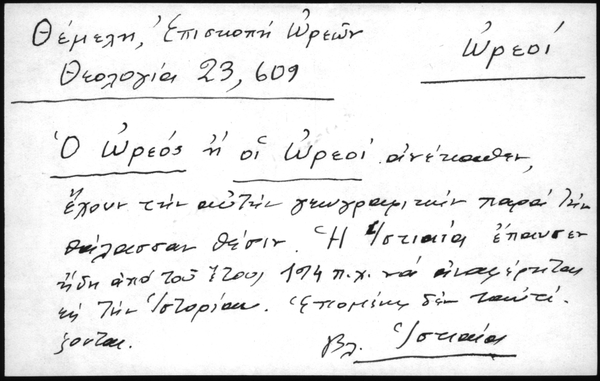 Θέμελη, Ἐπισκοπή Ὠρεῶν
Ὠρεοί
Θεολογία 23, 609
Ὁ Ὠρεός ἤ οἱ Ὠρεοί ἀνέκαθεν,
ἔχουν τήν αὐτήν γεωγραφικήν παρά τήν
θάλασσαν θέσιν. Ἡ Ἱστιαία ἔπαυσεν
ἤδη ἀπό τοῦ ἔτους 194 π.χ. νά ἀναφέρεται
εἰς τήν Ἱστορίαν. Ἑπομένως δέν ταὐτί-
ζονται.
Βλ. Ἱστιαία